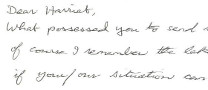 Dear Harriet,
What possessed you to send
of course I remember the lak
if your/our situation can